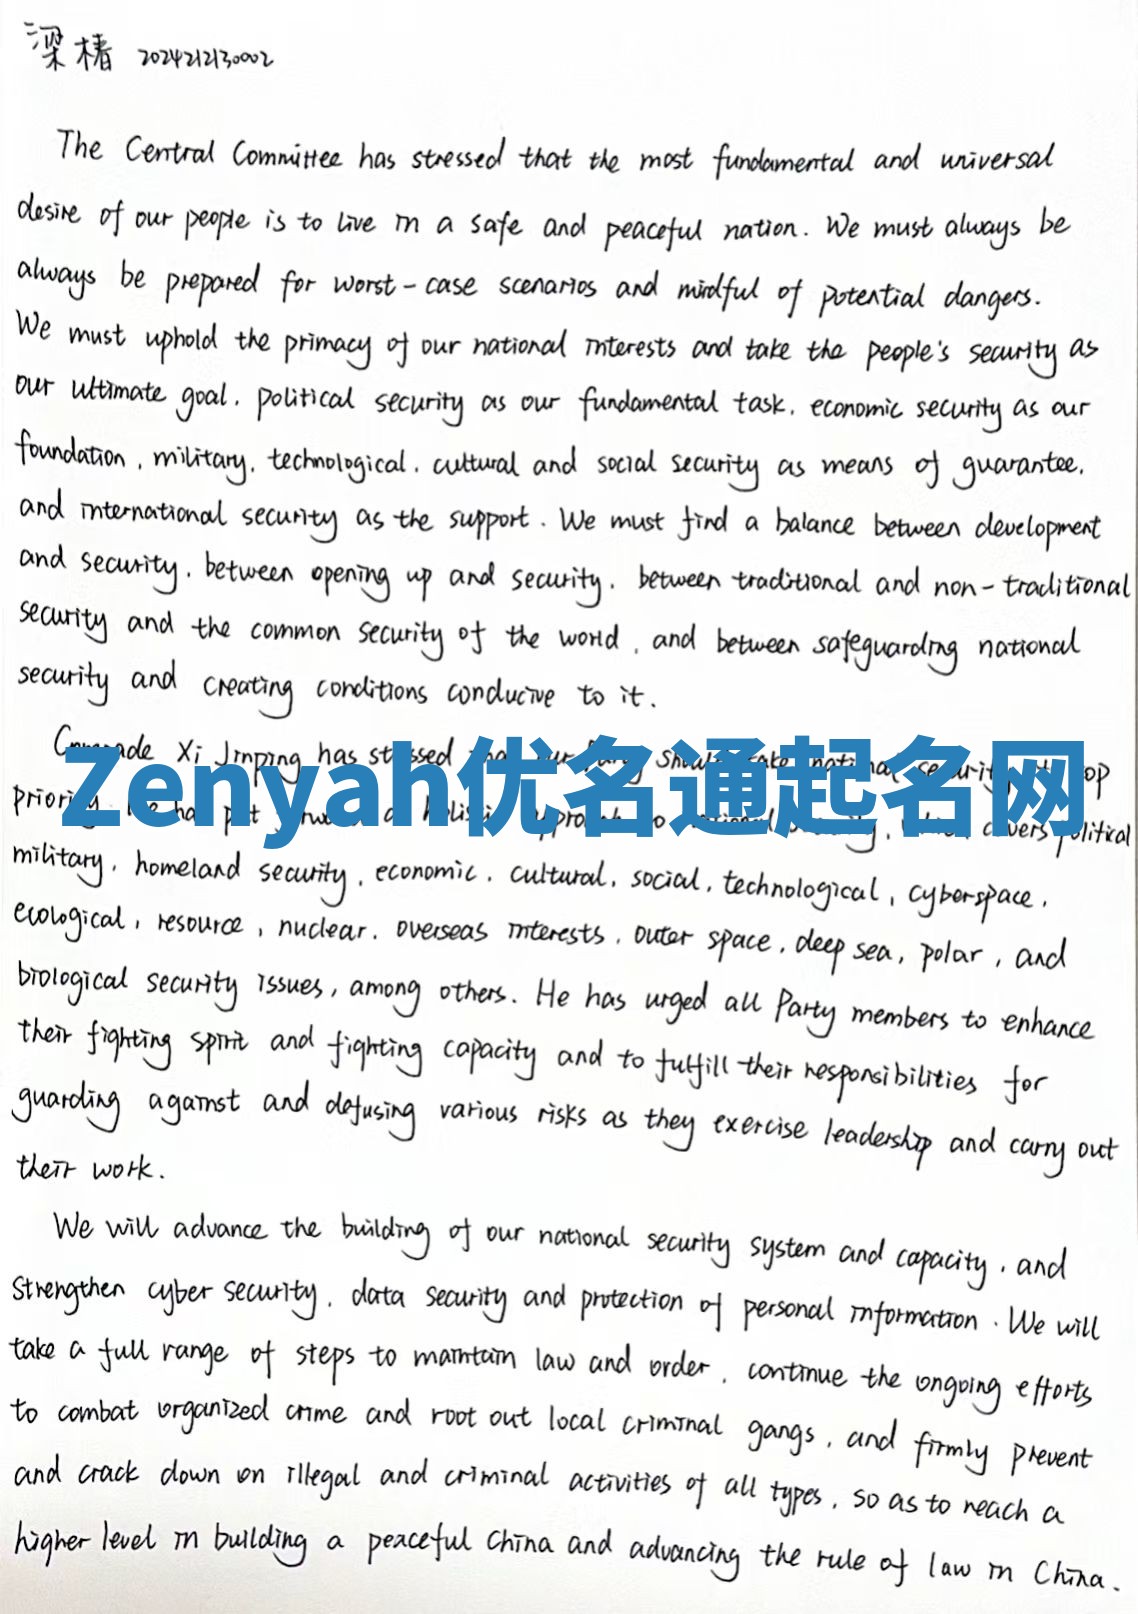 梁椿 2024212130002
The Central Committee has stressed that the most fundamental and universal
desire of our people is to live in a safe and peaceful nation. We must always be
always be prepared for worst-case scenarios and mindful of potential dangers.
We must uphold the primacy of our national interests and take the people's security as
our ultimate goal, political security as our fundamental task, economic security as our
foundation, military, technological, cultural and social security as means of guarantee,
and international security as the support. We must find a balance between development
and security, between opening up and security, between traditional and non-traditional
security and the common security of the world, and between safeguarding national
security and creating conditions conducive to it.
Comrade Xi Jinping has stressed that our Party should take national security top
Zenyah优名通起名网
priority. He has put forward a holistic approach to national security, which covers political
military, homeland security, economic, cultural, social, technological, cyberspace,
ecological, resource, nuclear, overseas interests, outer space, deep sea, polar, and
biological security issues, among others. He has urged all Party members to enhance
their fighting spirit and fighting capacity and to fulfill their responsibilities for
guarding against and defusing various risks as they exercise leadership and carry out
their work.
We will advance the building of our national security system and capacity, and
strengthen cyber security, data security and protection of personal information. We will
take a full range of steps to maintain law and order, continue the ongoing efforts
to combat organized crime and root out local criminal gangs, and firmly prevent
and crack down on illegal and criminal activities of all types, so as to reach a
higher level in building a peaceful China and advancing the rule of law in China.